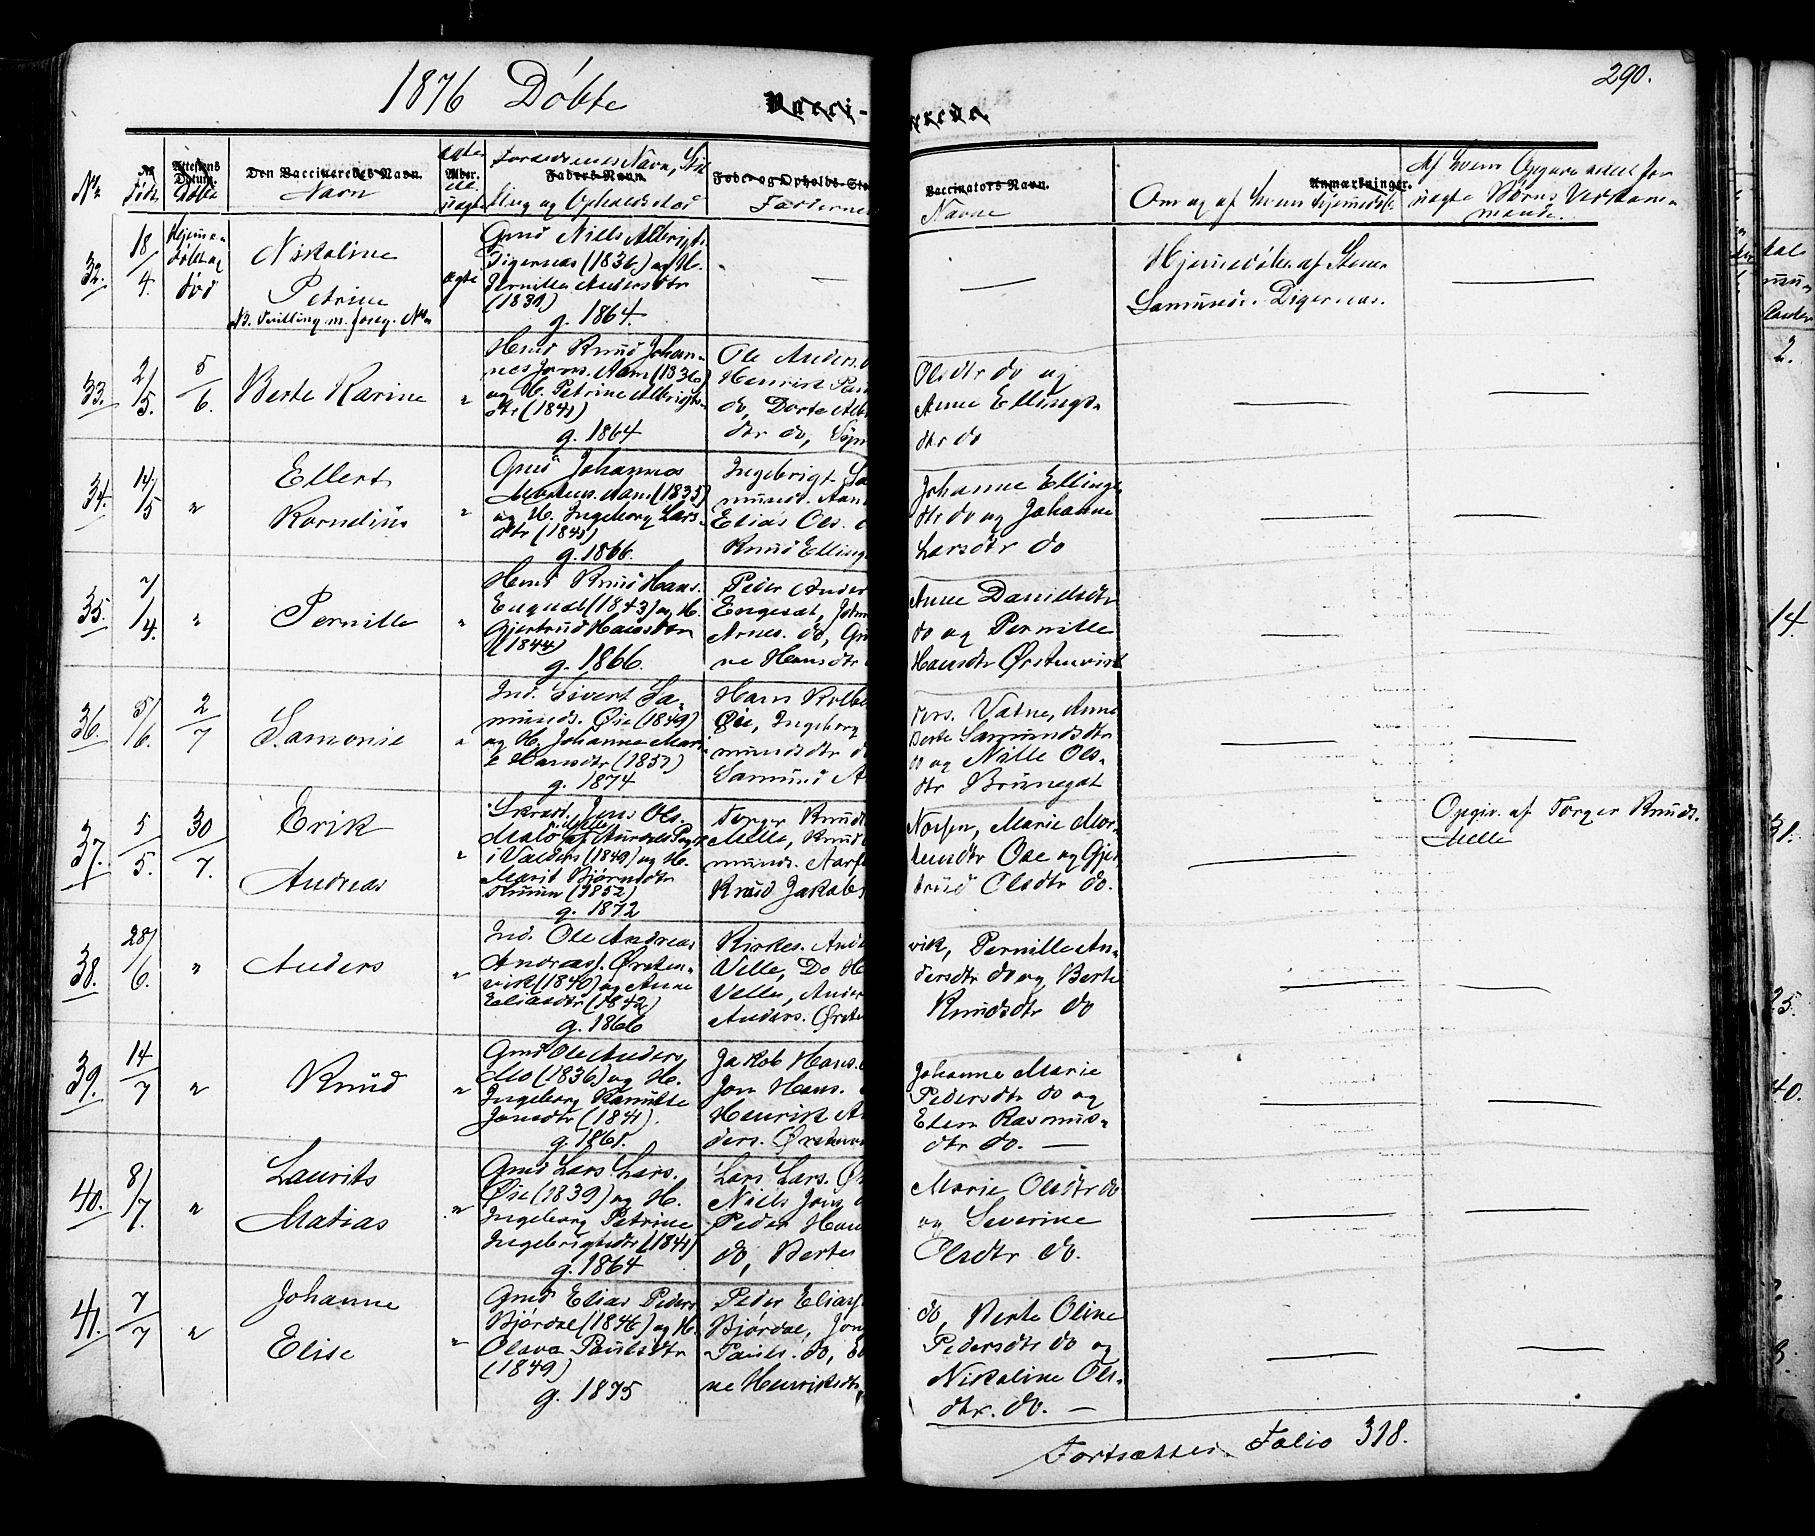 1876 Døbte
Vacci-
nerede.
290.
No.
No.
Født
Attestens Datum.
Døbt
Den Vaccineredes Navn.
Navn
Ægte
Alder.
el.
uægte
Forældrenes Navn, Stil-
Faders Navn.
ling og Opholdssted
Føde- og Opholds-Sted
Faddernes
Vaccinators Navn.
Navne
Anmærkninger.
Om og af hvem hjemmedøbt
Af hvem Opgave meddelt for
uægte Børns Vedkom-
mende.
32.
18/4.
Hjemme-
døbt og
død
Nikoline
Petrine
N. Tvilling m. foreg. No.
ægte
Gmd Niels Albrigts.
Digernæs (1836) og H.
Pernille Andersdtr
(1839)
g. 1864.
—
—
Hjemmedøbt af Stener
Samunds. Digernæs.
—
33.
2/5.
5/6.
Berte Karine
"
Hmd Knud Johan-
nes Jons. Aam (1836)
og H. Petrine Albrigts-
dtr (1841)
g. 1864
Ole Anders.
Henrik
do, Dorte
dtr do,
Olsdtr do og
Anne Ellings-
dtr do
—
—
34.
14/5
"
Ellert
Kornelius
"
Gmd Johannes
Mortens. Aam (1835)
og H. Ingeborg Lars-
dtr (1841)
g. 1866.
Ingebrigt Sa-
munds. Aam
Elias Ols.
Knud Elling
Johanne Ellings-
dtr do og Johanne
Larsdtr do
—
—
35.
7/4.
"
Pernille
"
Hmd Knud Hans.
Engesæt (1843) og H.
Gjertrud Hansdtr
(1844)
g. 1866.
Peder Ander
Engesæt, John
Arnes. do,
ne Hansdtr
Anne Danielsdtr
do og Pernille
Hansdtr Ørstenvik
—
—
36.
5/6.
2/7
Samonie
"
Ind. Sivert Sa-
munds. Øie (1849)
og H. Johanne Mari-
e Hansdtr (1851)
g. 1874
Hans Kolbe
Øie, Ingeborg
mundsdtr
Samund
Vatne, Anne
Berte Samundsdtr
do og Nille Ols-
dtr Brunegot
—
—
37.
5/5.
30/7.
Erik
Andreas
"
Skræd. Jens Ols.
i Valders (1849) og H.
Marit Bjørnsdtr
(1852)
g. 1872
Torger Knuds
Melle, Knud
munds. Aarf
Knud Jakobs
Marie Mor-
tensdtr Ose og Gjer-
trud Olsdtr do.
—
Opgiv. af Torger Knuds.
Melle
38.
28/6.
"
Anders
"
Ind. Ole Andreas
Andreass. Ørsten-
vik (1840) og Anne
Eliasdtr (1842)
g. 1866
Kirkes. Ande
Velle, Do H
Velle, Ander
Anders. Ørste
vik, Pernille An-
dersdtr do og Berte
Knudsdtr do
—
—
39.
14/7
"
Knud
"
Gmd Ole Anders.
Mo (1836) og H.
Ingeborg Kamilte
Jonsdtr (1841).
g. 1861.
Jakob Hans.
Jon Hans.
Henrik An
ders. Ørstenv
Johanne Marie
Pedersdtr do og
Elen Rasmus-
dtr do. —
—
—
40.
8/7.
"
Laurits
Matias
"
Gmd Lars Lars.
Øie (1839) og H.
Ingeborg Petrine
Ingebrigtsdtr (1841)
g. 1864
Lars Lars. Ø
Niels Jons.
Peder Han
do, Berte
Marie Olsdtr do
og Severine
Olsdtr do.
—
—
41.
7/7
"
Johanne
Elise
"
Gmd Elias Peders
Bjørdal (1846) og H.
Olava Paulsdtr
(1849)
g. 1875
Peder Eliass
Bjørdal, Jon
Pauls. do,
ne Henriksdtr
do, Berte Oline
Pedersdtr do og
Nikoline Ols-
dtr. do. —
—
—
Fortsættes Folio 318.
2.
14.
31.
25.
40.
3.